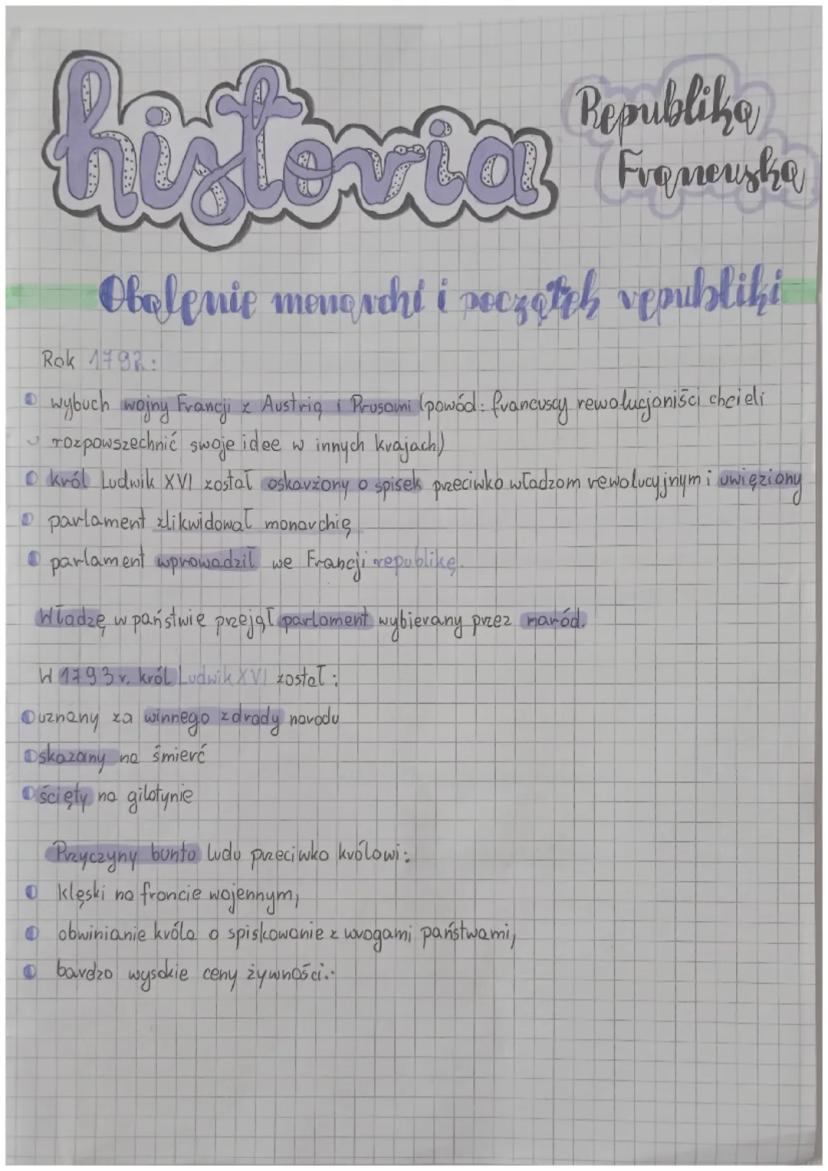 historia
Republika
Francuska
Obalenie monarchi i początek republiki
Rok 1792:
wybuch wojny Francji z Austrią i Prusami (powód: francuscy rewolucjoniści chcieli
rozpowszechnić swoje idee w innych krajach)
król Ludwik XVI został oskarżony o spisek przeciwko władzom rewolucyjnym i uwięziony
parlament zlikwidował monarchię
parlament wprowadził we Francji republikę.
Władzę w państwie przejął parlament wybierany przez naród.
W 1793 r. król Ludwik XVI został:
uznany za winnego zdrady narodu
skazany na śmierć
ścięty na gilotynie
Przyczyny buntu ludu przeciwko królowi:
klęski na froncie wojennym,
obwinianie króla o spiskowanie z wrogami państwami,
bardzo wysokie ceny żywności.